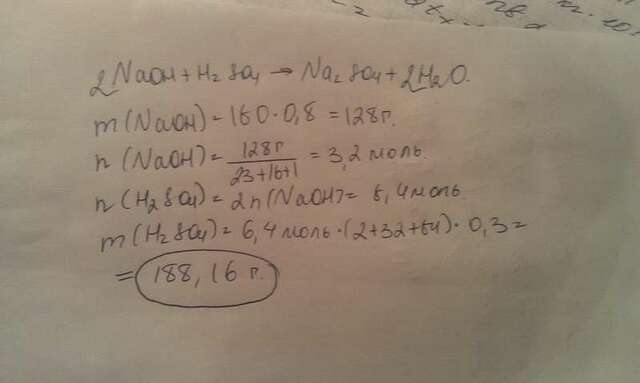 2NaOH + H₂SO₄ → Na₂SO₄ + 2H₂O.
m(NaOH) = 160·0,8 = 128г.
n(NaOH) = 128г / 23+16+1 = 3,2 моль.
n(H₂SO₄) = 2n(NaOH) = 6,4 моль.
m(H₂SO₄) = 6,4 моль·(2+32+64)·0,3 =
= 188,16 г.